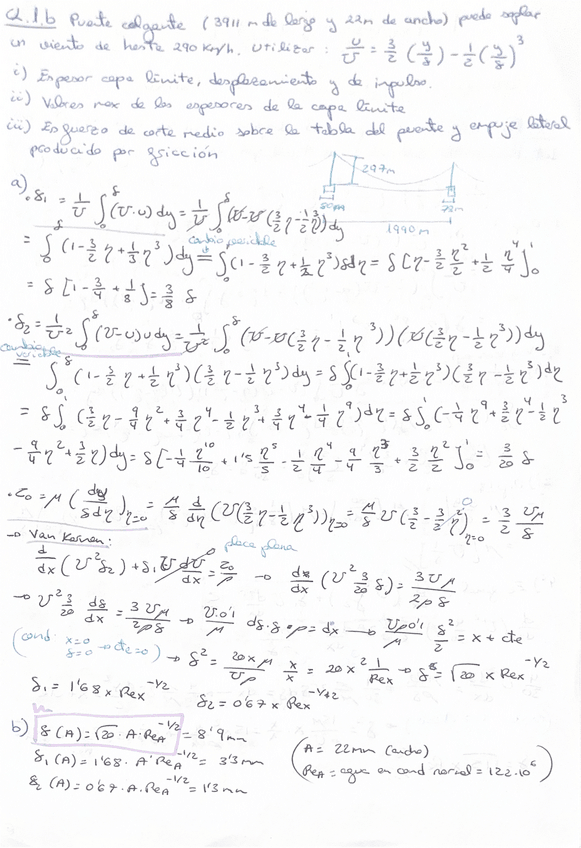 Q.1.b Puente colgante (3911 m de largo y 22m de ancho) puede soplar
un viento de hasta 290 Km/h. Utilizar: u/U = 3/2 (y/δ) - 1/2 (y/δ)³
i) Espesor capa límite, desplazamiento y de impulso.
ii) Valores max de los espesores de la capa límite
iii) Esfuerzo de corte medio sobre la tabla del puente y empuje lateral
producido por fricción
297m
80m
22m
1990 m
a) · δ₁ = 1/U ∫₀^δ (U-u) dy = 1/U ∫₀^δ (U-U(3/2 η - 1/2 η³)) dy
= ∫₀^δ (1 - 3/2 η + 1/2 η³) dy = ∫₀¹ (1 - 3/2 η + 1/2 η³) δ dη = δ [η - 3/2 η²/2 + 1/2 η⁴/4]₀¹
cambio variable
= δ [1 - 3/4 + 1/8] = 3/8 δ
· δ₂ = 1/U² ∫₀^δ (U-u) u dy = 1/U² ∫₀^δ (U-U(3/2 η - 1/2 η³)) (U(3/2 η - 1/2 η³)) dy
cambio variable
= ∫₀^δ (1 - 3/2 η + 1/2 η³)(3/2 η - 1/2 η³) dy = δ ∫₀¹ (1 - 3/2 η + 1/2 η³)(3/2 η - 1/2 η³) dη
= δ ∫₀¹ (3/2 η - 9/4 η² + 3/4 η⁴ - 1/2 η³ + 3/4 η⁴ - 1/4 η⁹) dη = δ ∫₀¹ (-1/4 η⁹ + 3/2 η⁴ - 1/2 η³
- 9/4 η² + 3/2 η) dy = δ [-1/4 η¹⁰/10 + 1'5 η⁵/5 - 1/2 η⁴/4 - 9/4 η³/3 + 3/2 η²/2]₀¹ = 3/20 δ
· τ₀ = μ (du/δdη)η=0 = μ/δ d/dη (U(3/2 η - 1/2 η³))η=0 = μ/δ U (3/2 - 3/2 η²)η=0 = 3/2 Uμ/δ
0
→ Van Karman:
placa plana
d/dx (U² δ₂) + δ₁ U dU/dx = τ₀/ρ → d/dx (U² 3/20 δ) = 3Uμ/2ρδ
0
→ U² 3/20 dδ/dx = 3Uμ/2ρδ → U·0'1/μ dδ·δ·ρ = dx → Uρ0'1/μ δ²/2 = x + cte
(cond. x=0 δ=0 → cte=0) → δ² = 20xμ/Uρ x/x = 20x² 1/Rex → δ = √20 x Rex^-1/2
δ₁ = 1'68 x Rex^-1/2 δ₂ = 0'67 x Rex^-1/2
b) δ(A) = √20 · A · ReA^-1/2 = 8'9 mm
δ₁(A) = 1'68 · A · ReA^-1/2 = 3'3 mm
δ₂(A) = 0'67 · A · ReA^-1/2 = 1'3 mm
(A = 22mm (ancho)
ReA = agua en cond normal = 122·10⁶)